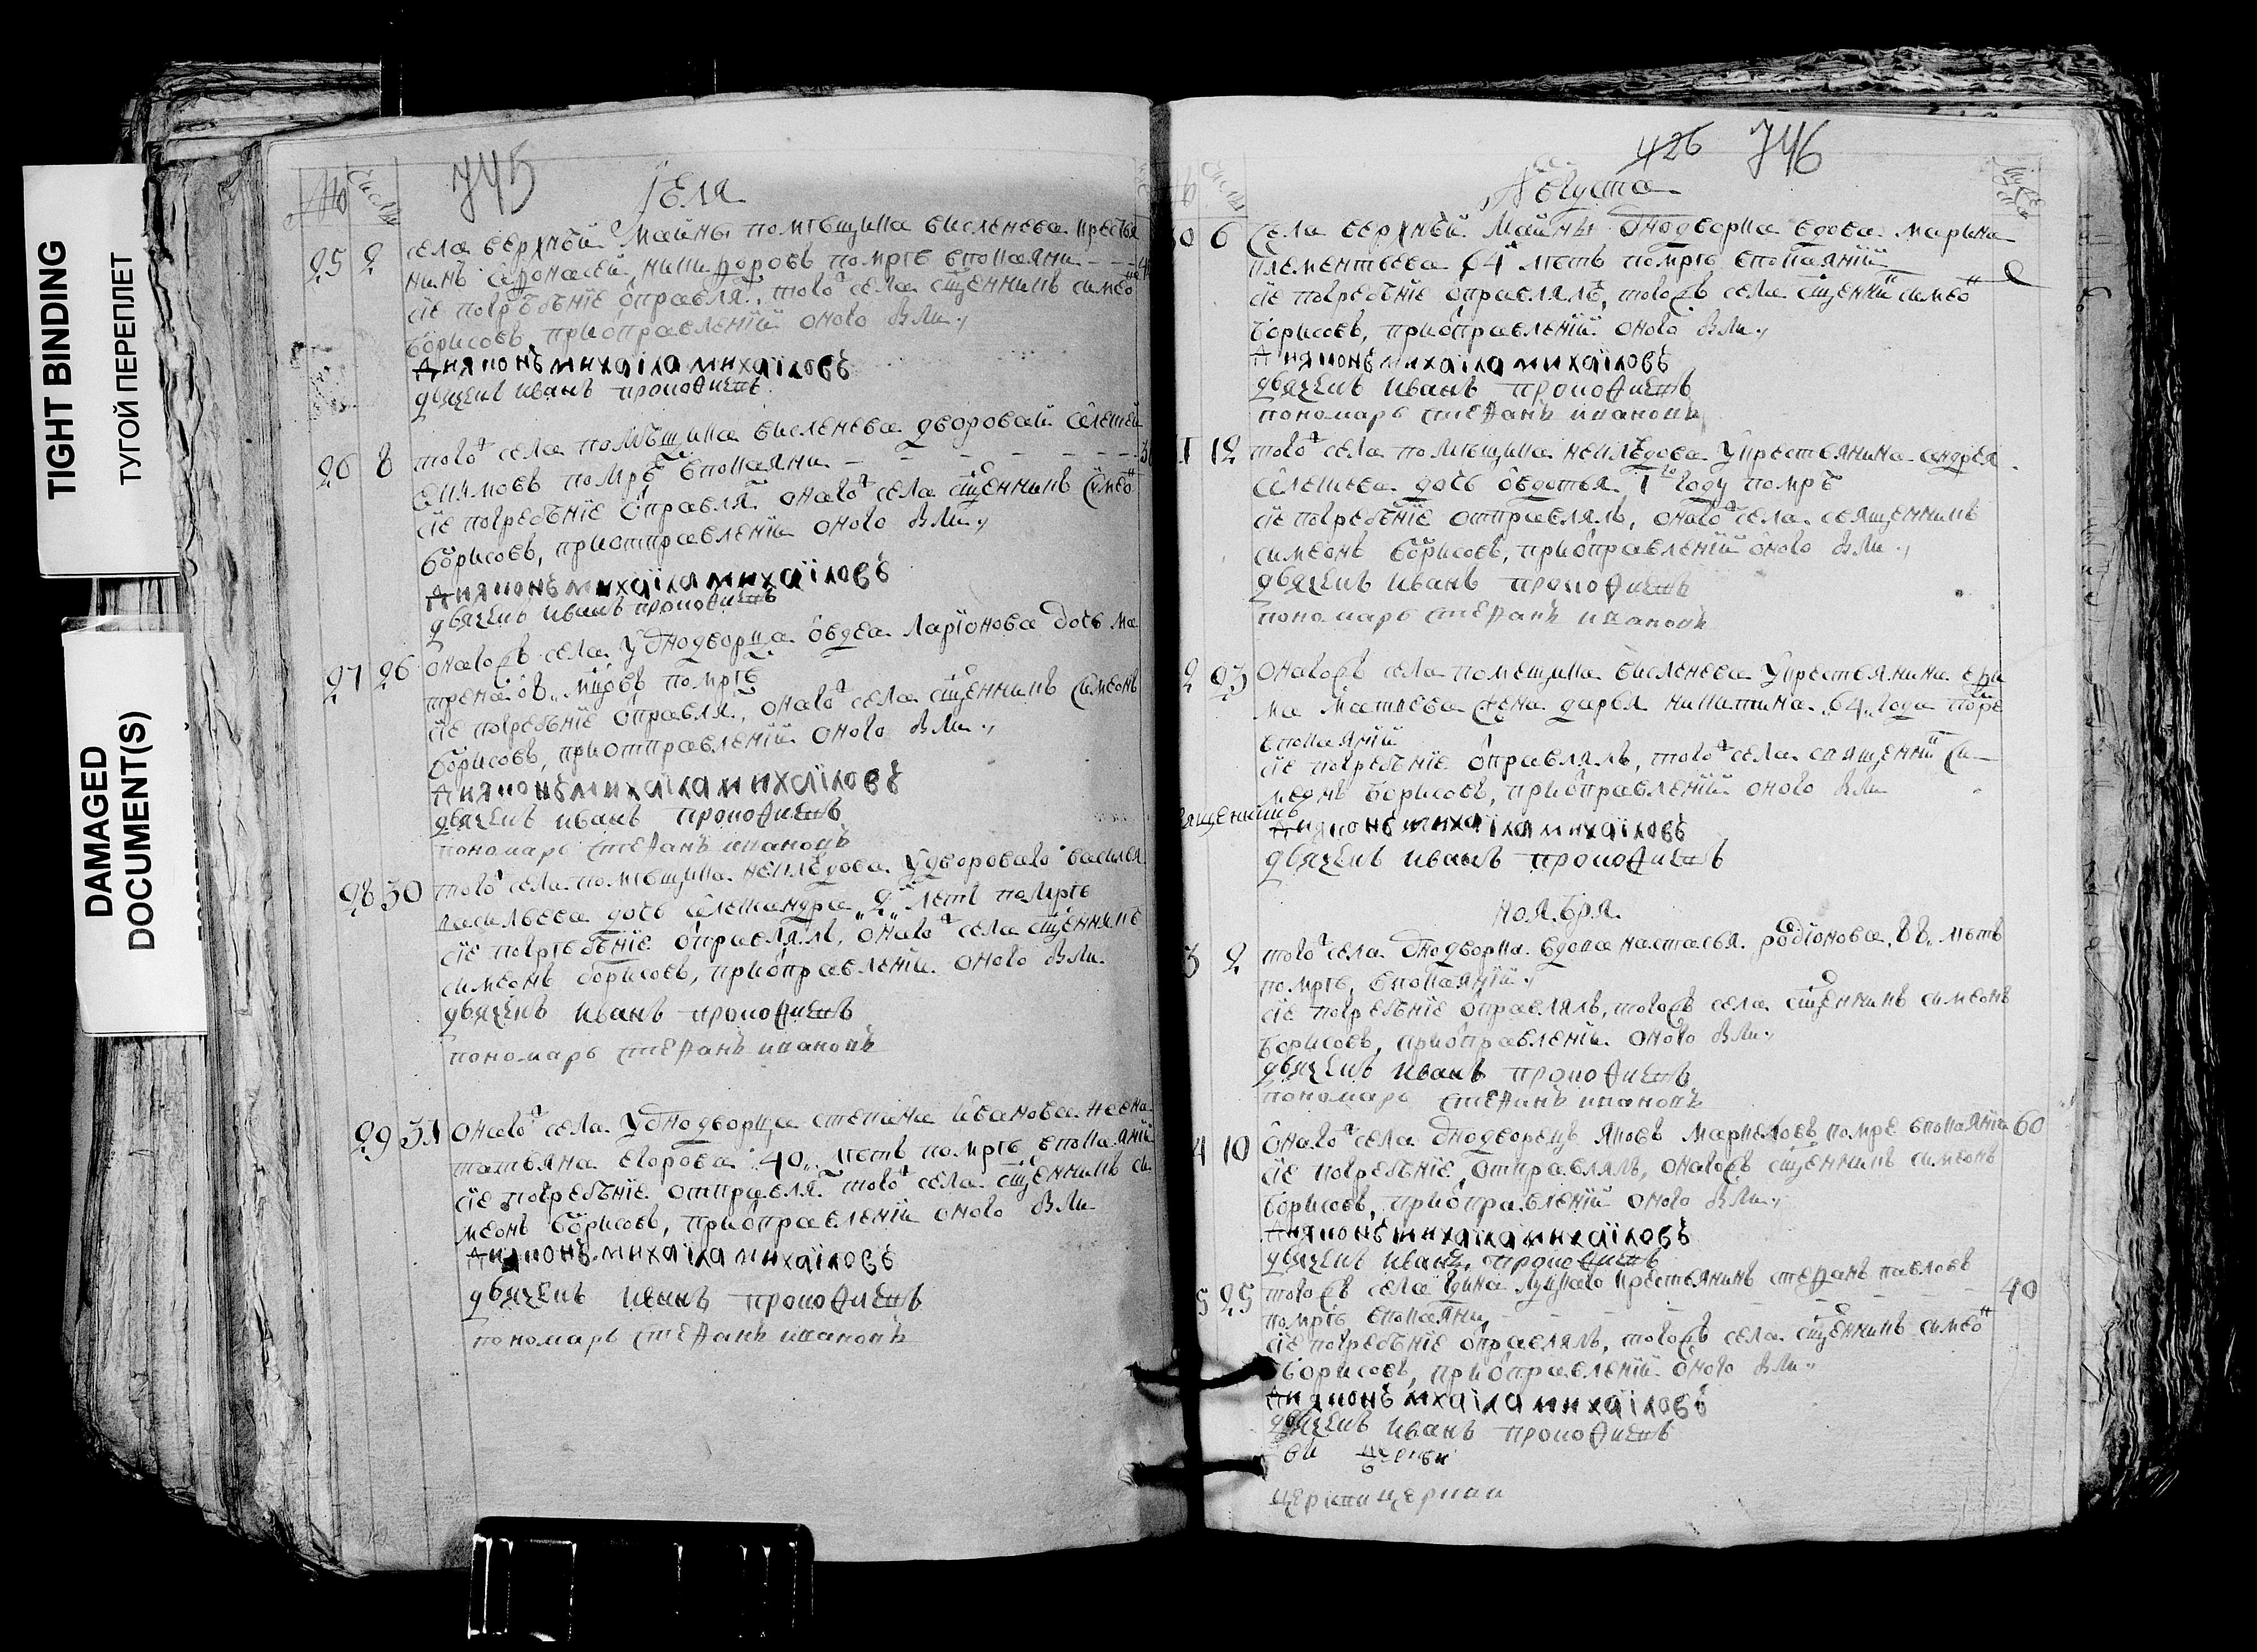 TIGHT BINDING
ТУГОЙ ПЕРЕПЛЕТ
DAMAGED
DOCUMENT(S)
№ Числа 745 Іюля
25 2 села верхней Майны помещика висленева крестья
нинъ никифоровъ помре впокаяни
сіе погребѣніе оправля, того села сщенникъ симео
борисовъ, приоправленіи оного были
Дияконъ михаіла михаіловъ
дьячекъ иванъ прокофиевъ
26 8 того села помѣщика висленева дворовай алексей
помре впокаяни
сіе погребѣніе оправля онаго села сщенникъ симео
борисовъ, приотправленіи оного были
Дияконъ михаіла михаіловъ
дьячекъ иванъ прокофиевъ
27 26 онагожъ села у однодворца авдеа ларіонова дочь ма
трена 8 мцовъ помре
сіе погребѣніе оправля, онаго села сщенникъ симеонъ
борисовъ, приотправленіи оного были
Дияконъ михаіла михаіловъ
дьячекъ иванъ прокофиевъ
пономарь стефанъ ивановъ
28 30 того села помѣщика неклюдова у дворового василья
васильева дочь александра 2 летъ помре
сіе погребѣніе оправлялъ, онаго села сщенникъ
симеонъ борисовъ, приоправленіи оного были
дьячекъ иванъ прокофиевъ
пономарь стефанъ ивановъ
29 31 онаго села у однодворца степана иванова жена
татьяна егорова 40 летъ помре впокаяніи
сіе погребѣніе отправля того села сщенникъ си
меонъ борисовъ, приоправленіи оного были
Дияконъ михаіла михаіловъ
дьячекъ иванъ прокофиевъ
пономарь стефанъ ивановъ
426 746
Августа
6 села верхней Майны однодворца вдова марина
клементьева 64 летъ помре впокаяніи
сіе погребѣніе оправлялъ, тогожъ села сщенни симео
борисовъ, приоправленіи оного были
Дияконъ михаіла михаіловъ
дьячекъ иванъ прокофиевъ
пономарь стефанъ ивановъ
12 того села помещика неклюдова у крестьянина андрея
алексеева дочь овдотья 1 году помре
сіе погребѣніе отправлялъ, онаго села священникъ
симеонъ борисовъ, приоправленіи оного были
дьячекъ иванъ прокофиевъ
пономарь стефанъ ивановъ
2 23 онагожъ села помещика висленева у крестьянина
матвеева жена дарья никитина 64 года
впокаяніи
сіе погребѣніе оправлялъ, того села священни си
меонъ борисовъ, приоправленіи оного были
Дияконъ михаіла михаіловъ
дьячекъ иванъ прокофиевъ
ноября
3 2 того села однодворца вдова настасья родіонова 88 летъ
помре, впокаяніи
сіе погребѣніе оправлялъ, тогожъ села сщенникъ симеонъ
борисовъ, приоправленіи оного были
дьячекъ иванъ прокофиевъ
пономарь стефанъ ивановъ
4 10 онаго села однодворецъ яковъ маркеловъ помре впокаяніи 60
сіе погребѣніе отправлялъ, онагожъ сщенникъ симеонъ
борисовъ, приоправленіи оного были
Дияконъ михаіла михаіловъ
дьячекъ иванъ прокофиевъ
5 25 тогожъ села крестьянинъ стефанъ павловъ
помре впокаяни 40
сіе погребѣніе оправлялъ, тогожъ села сщенникъ симео
борисовъ, приоправленіи оного были
Дияконъ михаіла михаіловъ
дьячекъ иванъ прокофиевъ